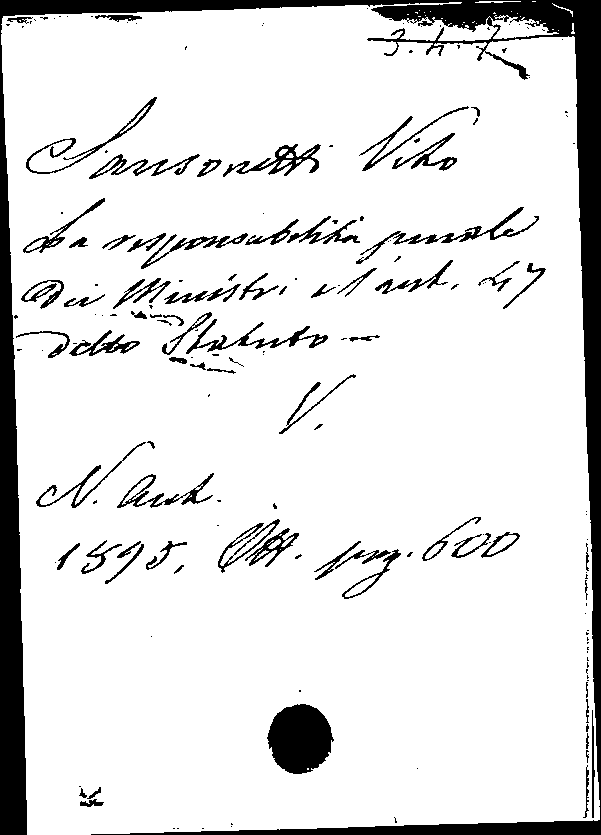 3.4.7.
Sansonetti Vito
La responsabilità penale
dei Ministri e l'art. 47
dello Statuto —
V.
N. Ant.
1895, Ott. pag. 600